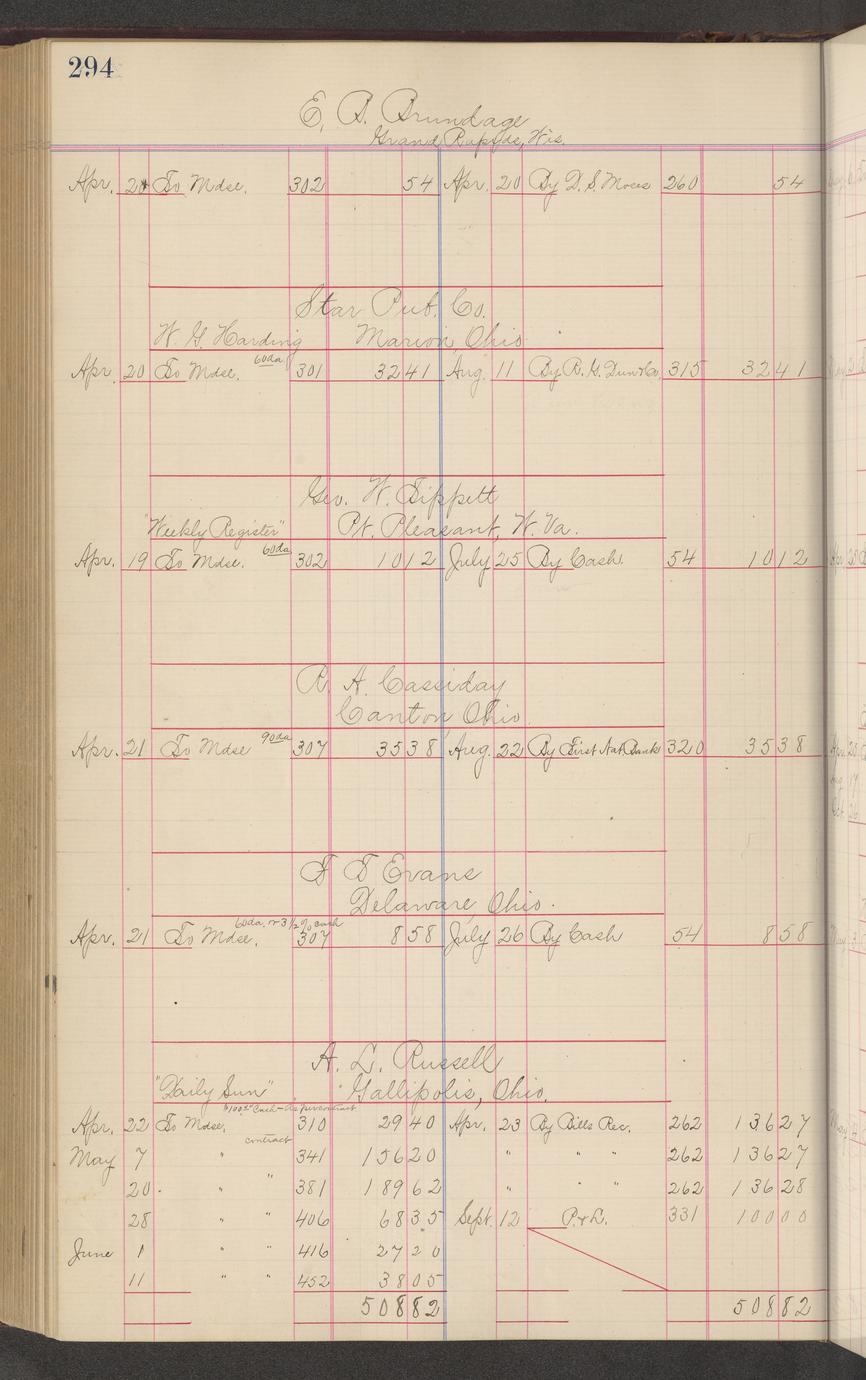 294
E. B. Brundage
Grand Rapids, Wis.
Apr. 20 To Mdse. 302 54 Apr. 20 By D. S. Moses 260 54
Star Pub. Co.
W. G. Harding Marion Ohio
Apr. 20 To Mdse. 60da 301 32 41 Aug. 11 By R. G. Dun & Co. 315 32 41
Geo. W. Tippett
"Weekly Register" Pt. Pleasant, W. Va.
Apr. 19 To Mdse. 60da 302 10 12 July 25 By Cash. 54 10 12
R. A. Cassiday
Canton Ohio.
Apr. 21 To Mdse 90da 307 35 38 Aug. 22 By First Nat. Bank 320 35 38
F T Evans
Delaware, Ohio.
Apr. 21 To Mdse. 60da. or 3 1/2 % cash 307 8 58 July 26 By Cash 54 8 58
A. L. Russell
"Daily Sun" Gallipolis, Ohio.
$100.00 Cash - as per contract
Apr. 22 To Mdse. 310 29 40 Apr. 23 By Bills Rec. 262 136 27
May 7 " contract 341 156 20 " " " 262 136 27
20 " " 381 189 62 " " " 262 136 28
28 " " 406 68 35 Sept. 12 P. & L. 331 100 00
June 1 " " 416 27 20
11 " " 452 38 05
508 82 508 82